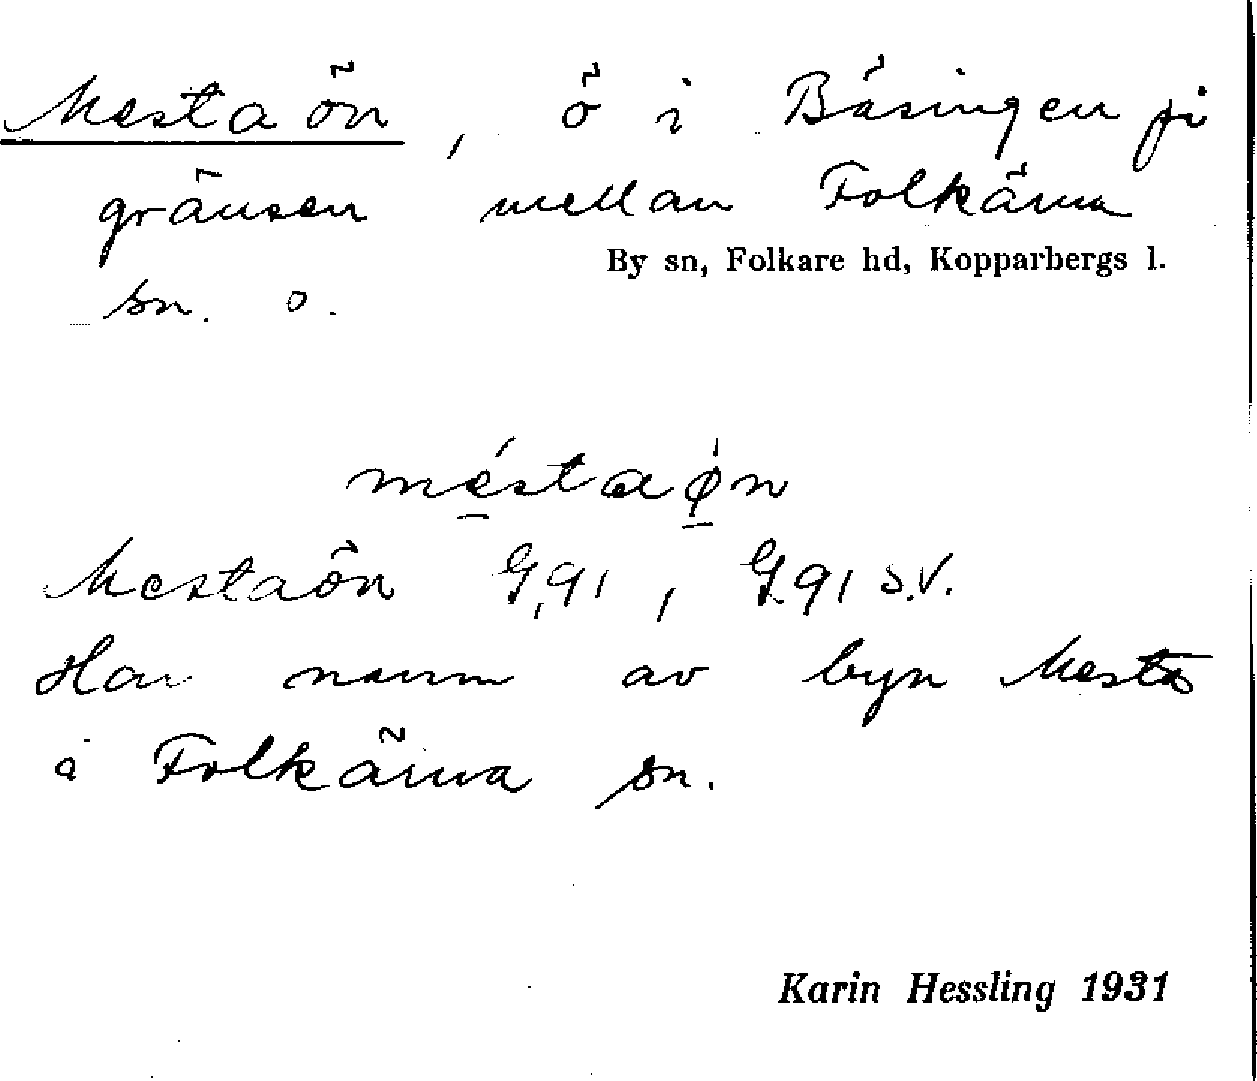 Mestaön, ö i Bäsingen på
gränsen mellan Folkärna
sn. o.
By sn, Folkare hd, Kopparbergs l.
méstaøn
Mestaön G,91, G.91 s.v.
Har namn av byn Mesta
i Folkärna sn.
Karin Hessling 1931